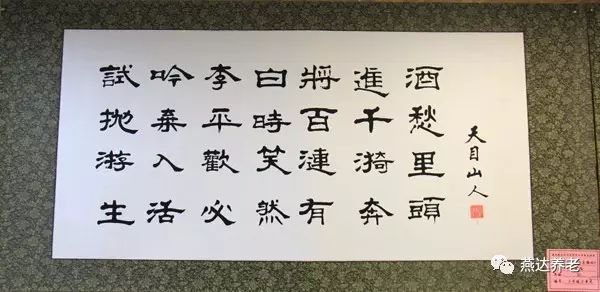 試吟李白將進酒
抛棄平時百千愁
游入歡笑漣漪里
生活必然有奔頭
天目山人
燕达养老